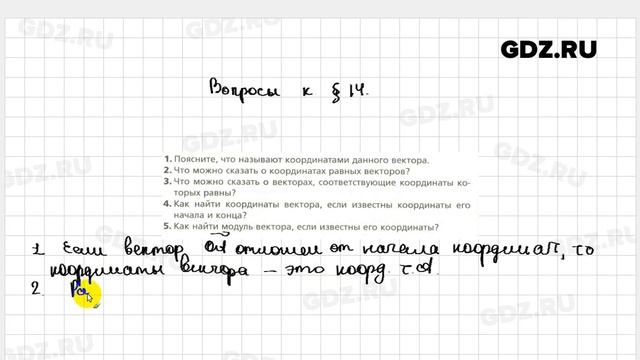 GDZ.RU
Вопросы к § 14.
1. Поясните, что называют координатами данного вектора.
2. Что можно сказать о координатах равных векторов?
3. Что можно сказать о векторах, соответствующие координаты ко-
торых равны?
4. Как найти координаты вектора, если известны координаты его
начала и конца?
5. Как найти модуль вектора, если известны его координаты?
1 Если вектор OA отложен от начала координат, то
координаты вектора – это коорд. т. A.
2. Ра